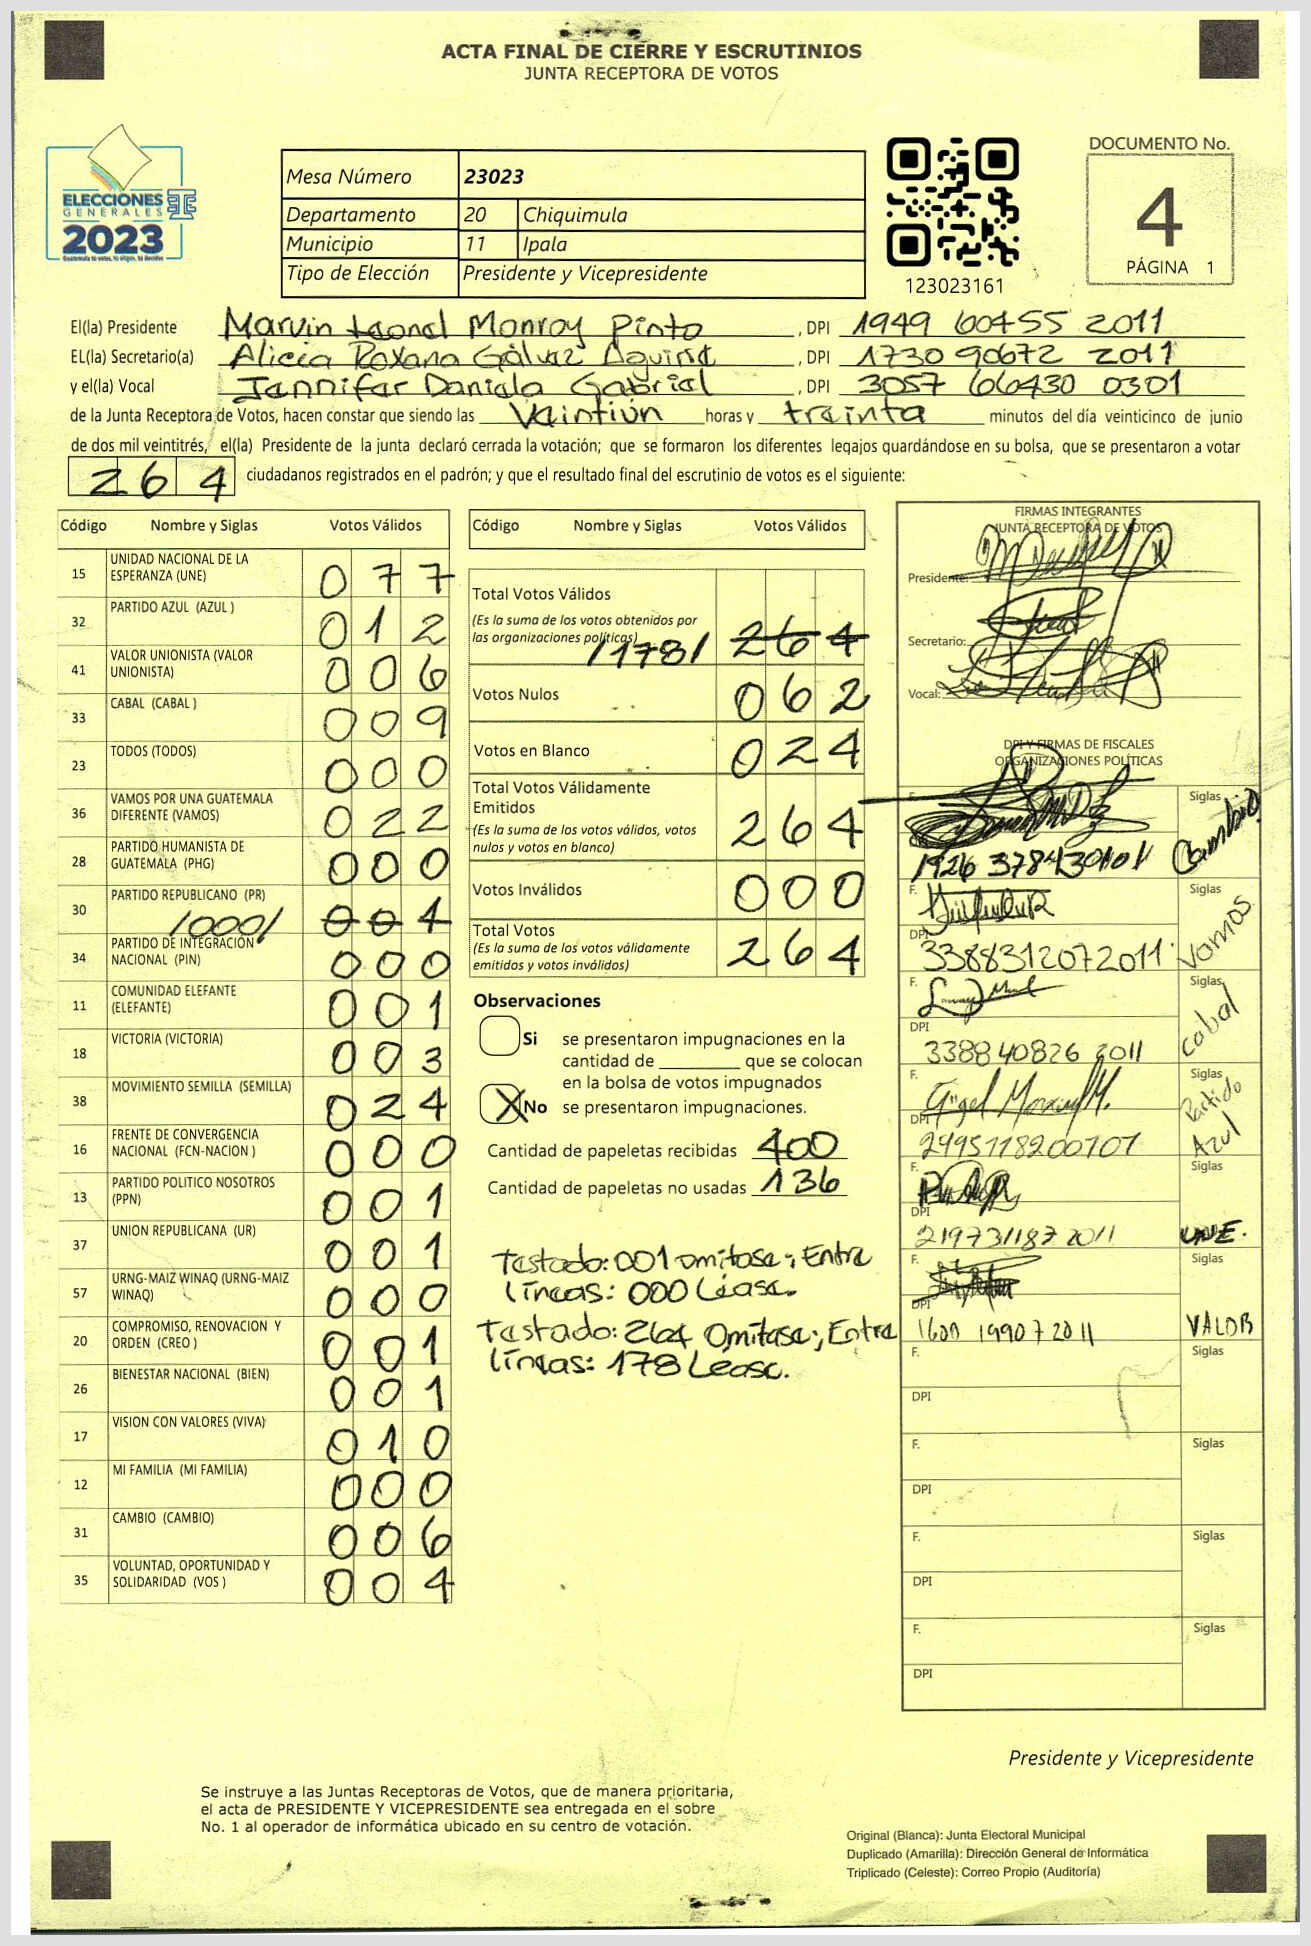 ACTA FINAL DE CIERRE Y ESCRUTINIOS
JUNTA RECEPTORA DE VOTOS
ELECCIONES
GENERALES
2023
Mesa Número 23023
Departamento 20 Chiquimula
Municipio 11 Ipala
Tipo de Elección Presidente y Vicepresidente
123023161
DOCUMENTO No.
4
PÁGINA 1
El(la) Presidente Marvin Leonel Monroy Pinto, DPI 1949 60455 2011
EL(la) Secretario(a) Alicia Roxana Gálvez Aguirre, DPI 1730 90672 2011
y el(la) Vocal Jennifer Daniela Gabriel, DPI 3057 66430 0301
de la Junta Receptora de Votos, hacen constar que siendo las Veintiún horas y treinta minutos del día veinticinco de junio
de dos mil veintitrés, el(la) Presidente de la junta declaró cerrada la votación; que se formaron los diferentes legajos guardándose en su bolsa, que se presentaron a votar
264 ciudadanos registrados en el padrón; y que el resultado final del escrutinio de votos es el siguiente:
Código Nombre y Siglas Votos Válidos
15 UNIDAD NACIONAL DE LA ESPERANZA (UNE) 077
32 PARTIDO AZUL (AZUL ) 012
41 VALOR UNIONISTA (VALOR UNIONISTA) 006
33 CABAL (CABAL ) 009
23 TODOS (TODOS) 000
36 VAMOS POR UNA GUATEMALA DIFERENTE (VAMOS) 022
28 PARTIDO HUMANISTA DE GUATEMALA (PHG) 000
30 PARTIDO REPUBLICANO (PR) /000/ 001
34 PARTIDO DE INTEGRACIÓN NACIONAL (PIN) 000
11 COMUNIDAD ELEFANTE (ELEFANTE) 001
18 VICTORIA (VICTORIA) 003
38 MOVIMIENTO SEMILLA (SEMILLA) 024
16 FRENTE DE CONVERGENCIA NACIONAL (FCN-NACION ) 000
13 PARTIDO POLITICO NOSOTROS (PPN) 001
37 UNION REPUBLICANA (UR) 001
57 URNG-MAIZ WINAQ (URNG-MAIZ WINAQ) 000
20 COMPROMISO, RENOVACION Y ORDEN (CREO ) 001
26 BIENESTAR NACIONAL (BIEN) 001
17 VISION CON VALORES (VIVA) 010
12 MI FAMILIA (MI FAMILIA) 000
31 CAMBIO (CAMBIO) 006
35 VOLUNTAD, OPORTUNIDAD Y SOLIDARIDAD (VOS ) 004
Código Nombre y Siglas Votos Válidos
Total Votos Válidos
(Es la suma de los votos obtenidos por
las organizaciones políticas) /178/ 264
Votos Nulos 062
Votos en Blanco 024
Total Votos Válidamente
Emitidos
(Es la suma de los votos válidos, votos
nulos y votos en blanco) 264
Votos Inválidos 000
Total Votos
(Es la suma de los votos válidamente
emitidos y votos inválidos) 264
Observaciones
Si se presentaron impugnaciones en la
cantidad de ________ que se colocan
en la bolsa de votos impugnados
X No se presentaron impugnaciones.
Cantidad de papeletas recibidas 400
Cantidad de papeletas no usadas 136
Testado: 001 omitase; Entre
líneas: 000 Léase.
Testado: 264 Omitase; Entre
líneas: 178 Léase.
FIRMAS INTEGRANTES
JUNTA RECEPTORA DE VOTOS
Presidente:
Secretario:
Vocal:
DPI Y FIRMAS DE FISCALES
ORGANIZACIONES POLÍTICAS
F. Siglas
Cambio
F. Siglas
Vamos
DPI 3388312072011
F. Siglas
Cabal
DPI
338840826 2011
F. Siglas
Partido
Azul
DPI
2495118200707
F. Siglas
DPI
219731187 2011 UNE.
F. Siglas
DPI
VALOR
F. Siglas
DPI
F. Siglas
DPI
F. Siglas
DPI
F. Siglas
DPI
Presidente y Vicepresidente
Se instruye a las Juntas Receptoras de Votos, que de manera prioritaria,
el acta de PRESIDENTE Y VICEPRESIDENTE sea entregada en el sobre
No. 1 al operador de informática ubicado en su centro de votación.
Original (Blanca): Junta Electoral Municipal
Duplicado (Amarilla): Dirección General de Informática
Triplicado (Celeste): Correo Propio (Auditoría)